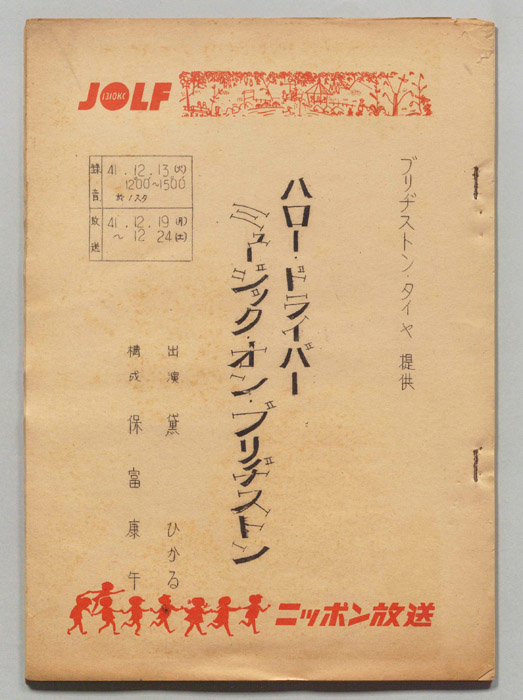 JOLF
1310KC
ブリヂストン・タイヤ 提供
ハロー・ドライバー
ミュージック・オン・ブリヂストン
録音 41.12.13(火)
12:00~15:00
於1スタ
放送 41.12.19(月)
~12 24(土)
出演 黛 ひかる
構成 保富康午
ニッポン放送